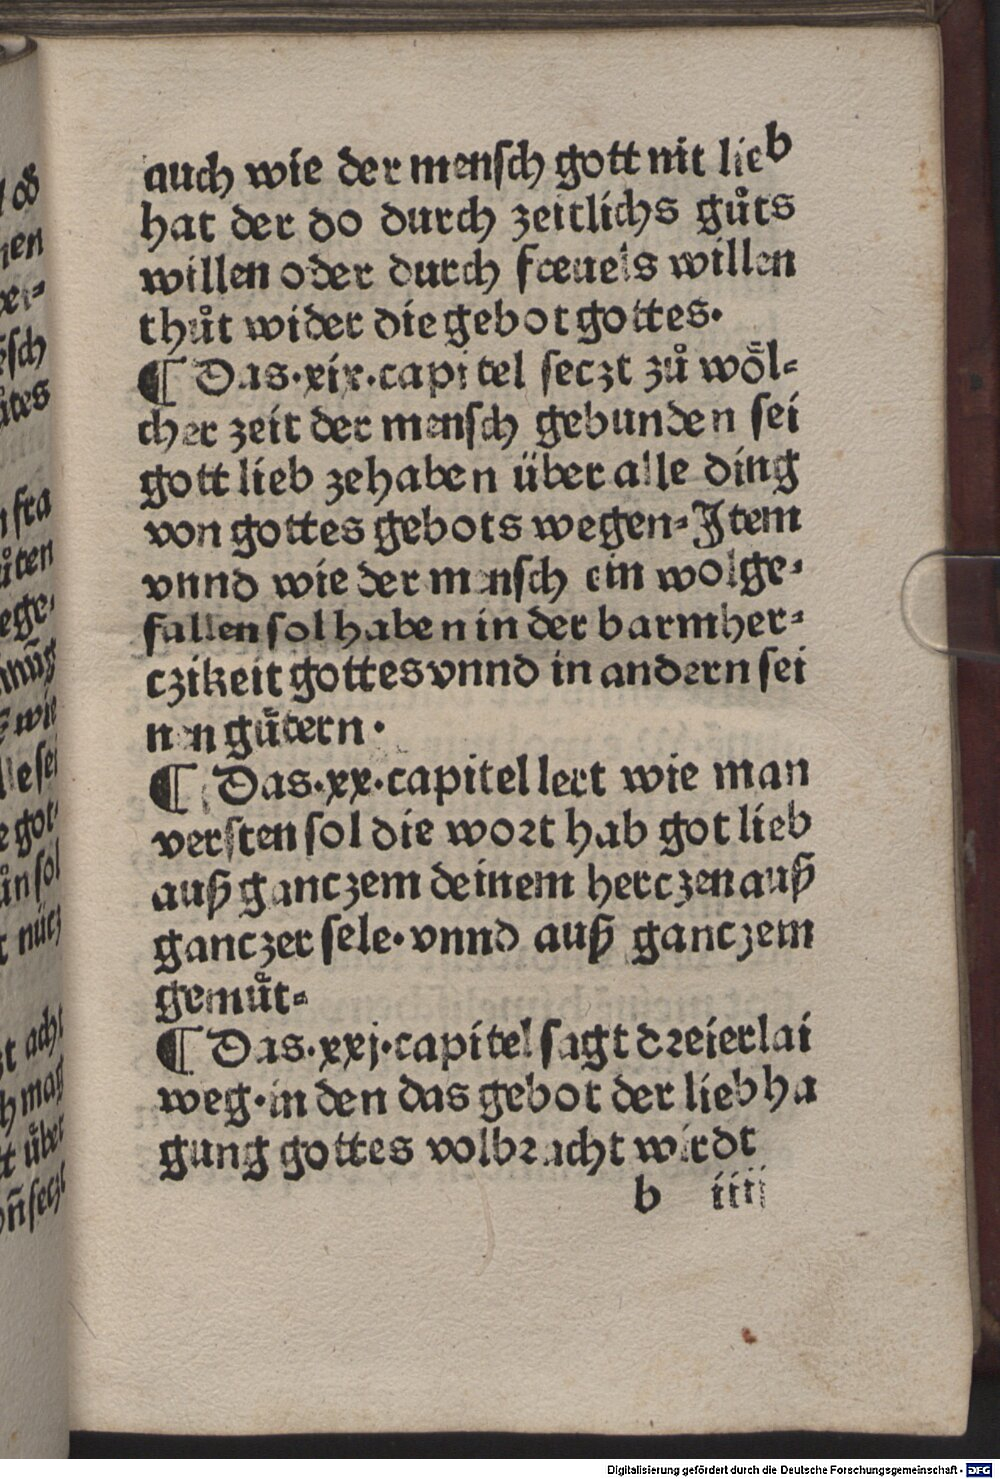 auch wie der mensch gott nit lieb
hat der do durch zeitlichs gůts
willen oder durch freuels willen
thůt wider die gebot gottes·
¶ Das·xix·capitel seczt zů woͤl⸗
cher zeit der mensch gebunden sei
gott lieb zehaben über alle ding
von gottes gebots wegen⸗ Item
vnnd wie der mensch ein wolge⸗
fallen sol haben in der barmher⸗
czikeit gottes vnnd in andern sei
nen guͤtern·
¶ Das·xx·capitel lert wie man
versten sol die wort hab got lieb
auß ganczem deinem herczen auß
ganczer sele·vnnd auß ganczem
gemůt⸗
¶ Das·xxj·capitel sagt dreierlai
weg·in den das gebot der liebha
gung gottes volbracht wirdt
b iiij
Digitalisierung gefördert durch die Deutsche Forschungsgemeinschaft - DFG